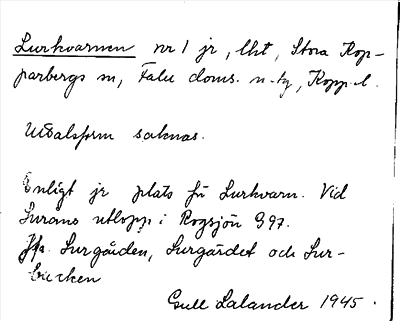 Lurkvarnen nr 1 jr, lht, Stora Kop-
parbergs sn, Falu doms. n. tg, Kopp. l.
Uttalsform saknas.
Enligt jr plats för Lurkvarn. Vid
Luråns utlopp i Rogsjön 997.
Jfr. Lurgården, Lurgärdet och Lur-
backen
Gull Lalander 1945.